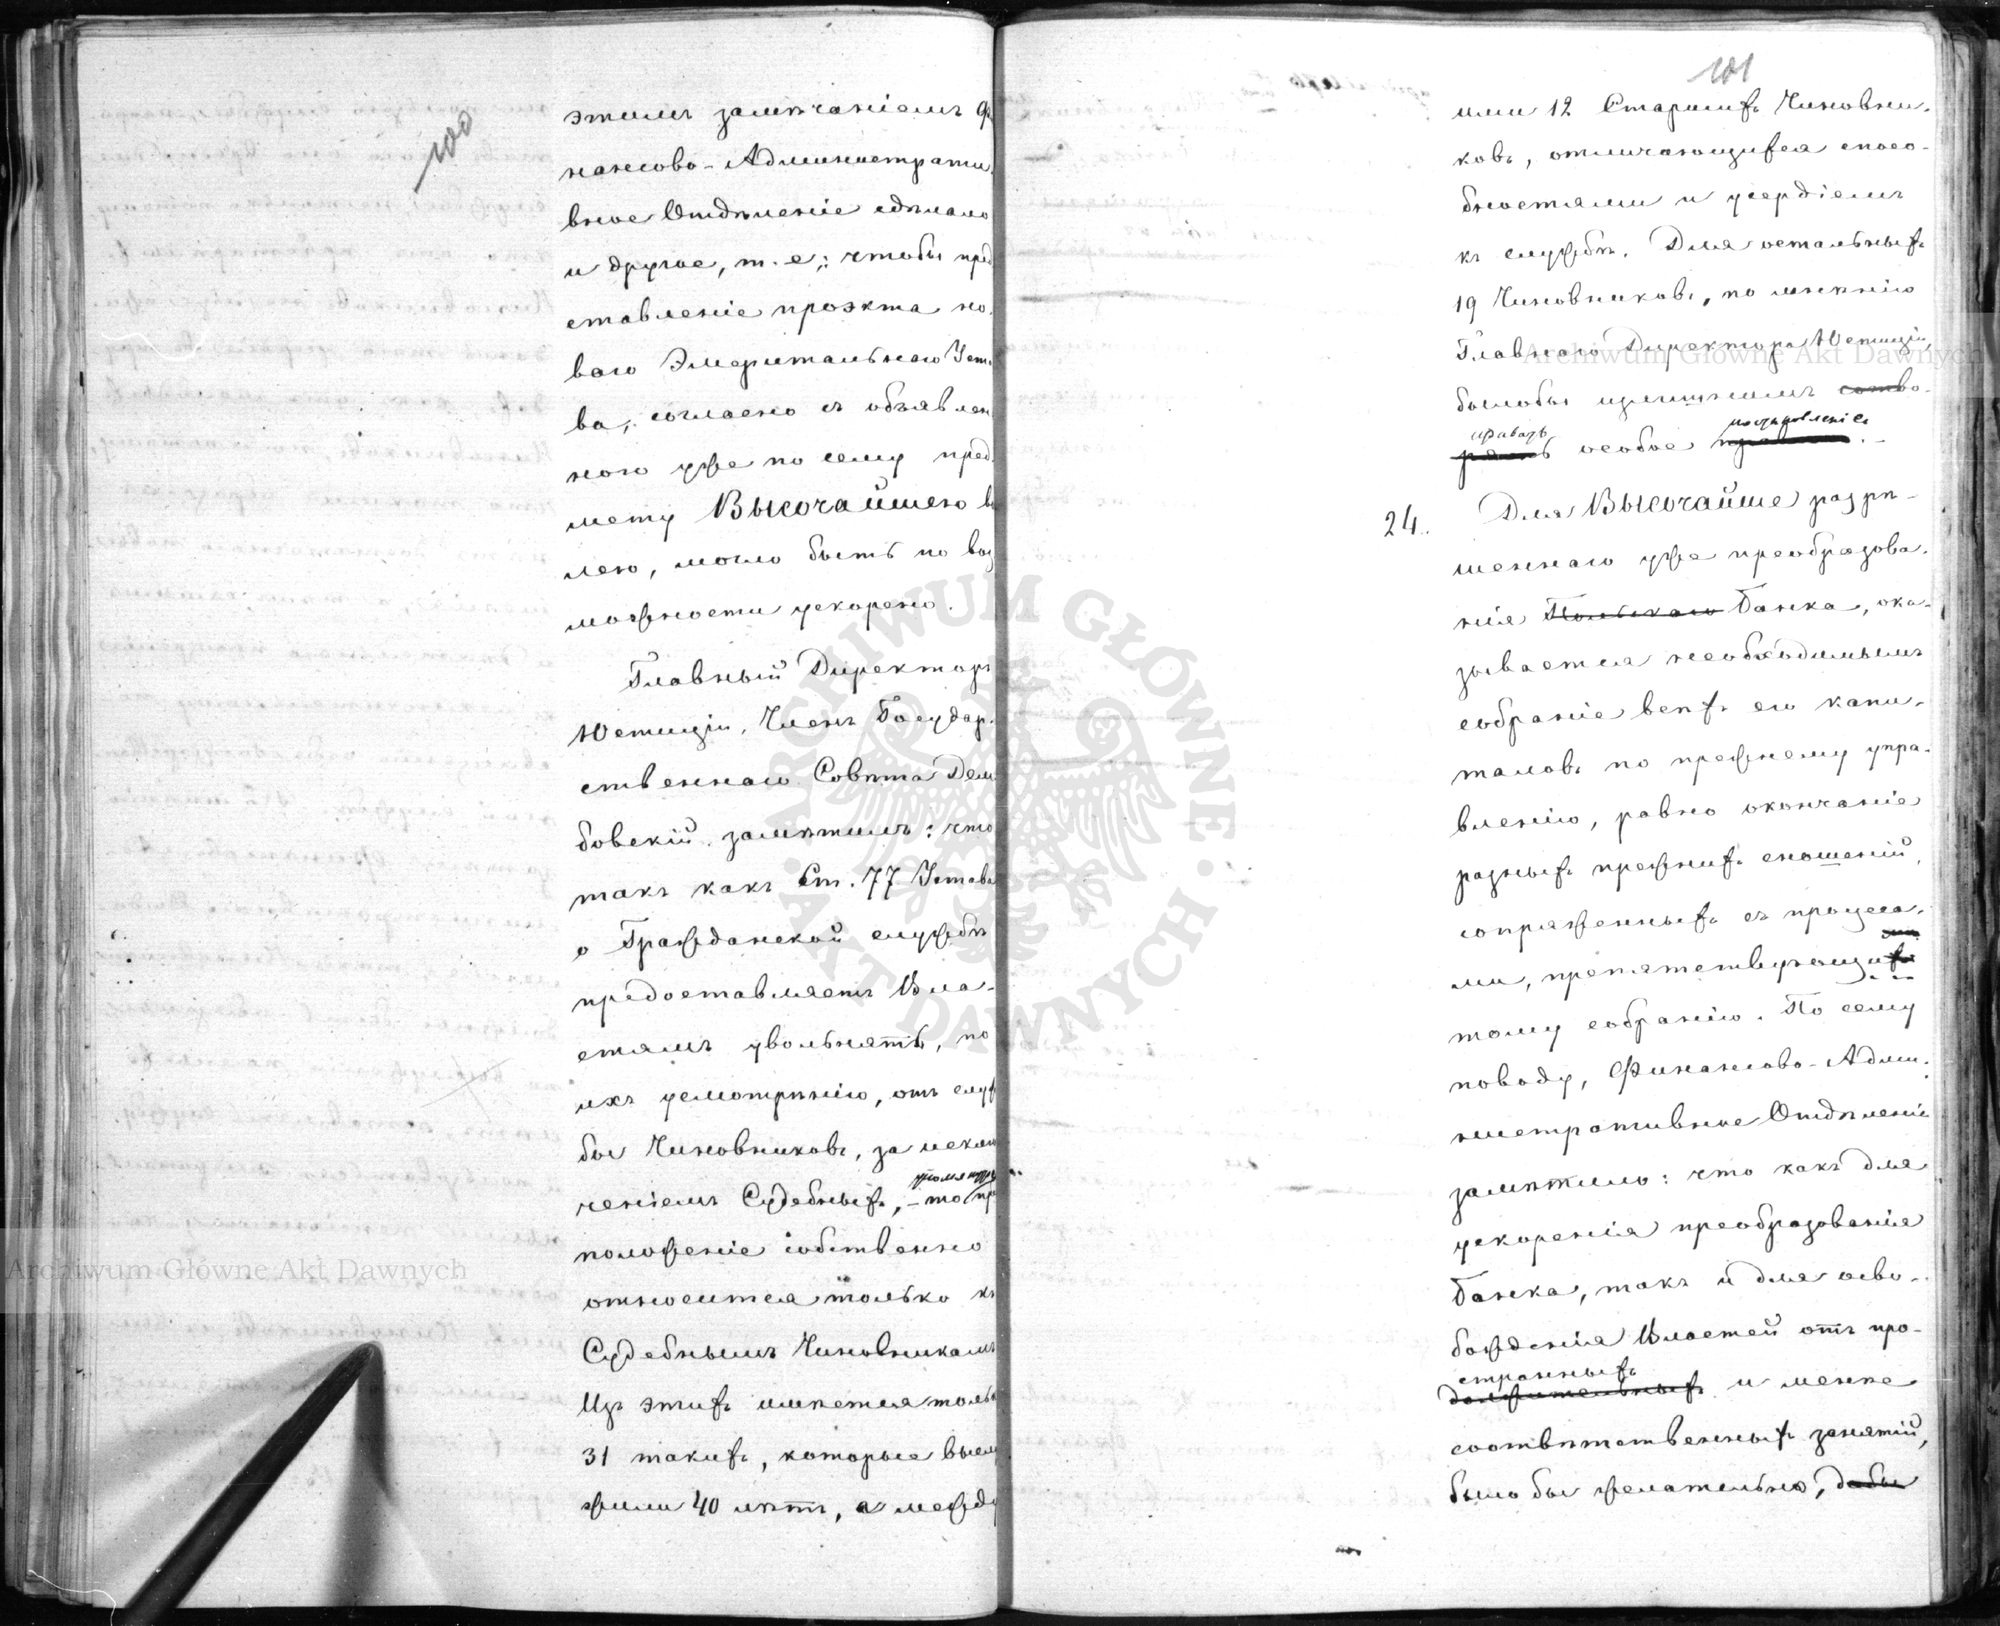 100
этимъ замѣчаніемъ Фи
нансово-Администрати
вное Отдѣленіе сдѣлало
и другое, т. е.: чтобы пред
ставленіе проэкта но-
ваго Эмеритальнаго Уста
ва, согласно съ объявлен
ною уже по сему пред
мету Высочайшею во
лею, могло быть по воз
можности ускорено.
Главный Директоръ
Юстиціи, Членъ Государ-
ственнаго Совѣта Дем
бовскій замѣтилъ: что
такъ какъ Ст. 77 Устава
о Гражданской службѣ
предоставляетъ Вла-
стямъ увольнять, по
ихъ усмотрѣнію, отъ служ
бы Чиновниковъ, за исклю
ченіемъ Судебныхъ, – то пр
положеніе собственно
относится только къ
Судебнымъ Чиновникамъ
Изъ этихъ имѣется только
31 такихъ, которые выслу
жили 40 лѣтъ, а между
101
ими 12 Старшихъ Чиновни-
ковъ, отличающихся спосо-
бностями и усердіемъ
къ службѣ. Для остальныхъ
19 Чиновниковъ, по мнѣнію
Главнаго Директора Юстиціи,
былобы излишнимъ
издавать особое постановленіе.
24. Для Высочайше разрѣ-
шеннаго уже преобразова-
нія Польскаго Банка, ока-
зывается необходимымъ
собраніе всѣхъ его капи-
таловъ по прежнему упра-
вленію, равно окончаніе
разныхъ прежнихъ сношеній,
сопряженныхъ съ процесса-
ми, препятствующихъ
тому собранію. По сему
поводу, Финансово-Адми-
нистративное Отдѣленіе
замѣтило: что какъ для
ускоренія преобразованія
Банка, такъ и для осво-
божденія Властей отъ про-
странныхъ
и менѣе
соотвѣтственныхъ занятій,
было бы желательно, дабы
Archiwum Główne Akt Dawnych
Archiwum Główne Akt Dawnych
ARCHIWUM GŁÓWNE · AKT DAWNYCH ·